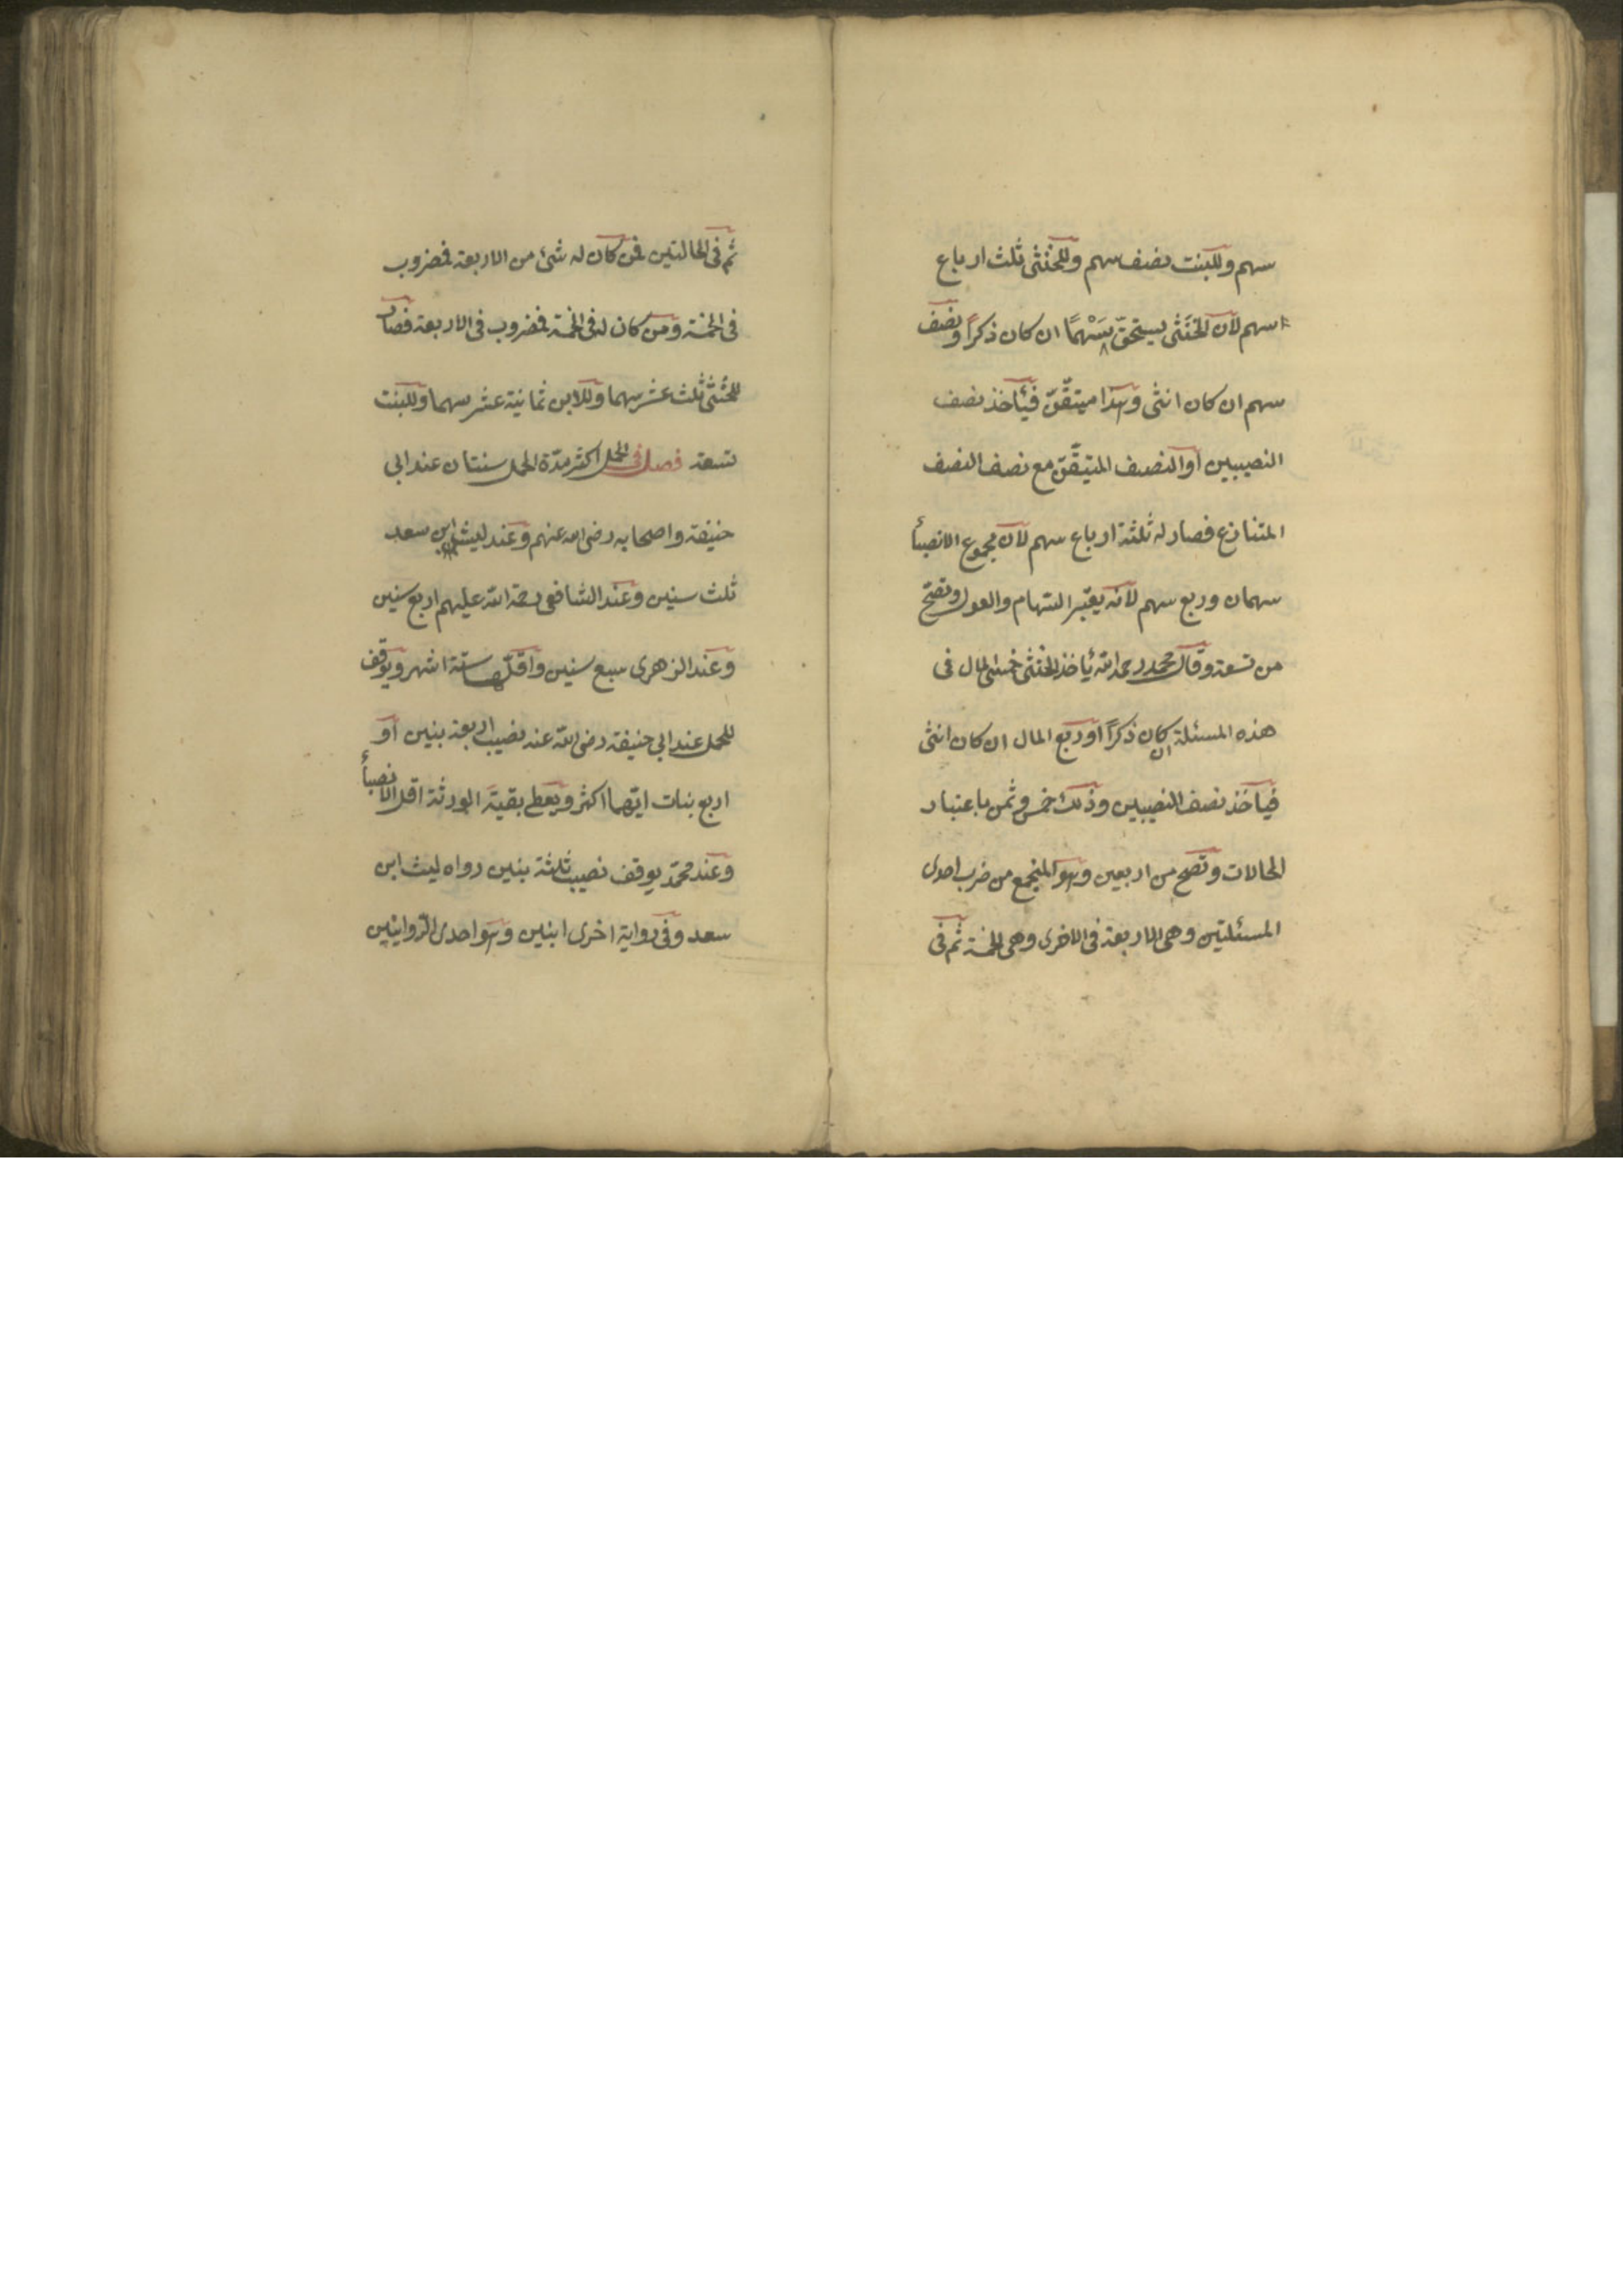 سهم وللبنت نصف سهم وللخنثى ثلث ارباع
سهم لان الخنثى يستحق سهمًا ان كان ذكرًا ونصف
سهم ان كان انثى وهذا متيقّن فيأخذ نصف
النصيبين او النصف المتيقّن مع نصف النصف
المتنازع فصار له ثلثة ارباع سهم لان مجموع الانصبأ
سهمان وربع سهم لانه يعتبر السّهام والعول وتصحّ
من تسعة وقال محمد رحمه الله يأخذ الخنثى خمسى المال فى
هذه المسئلة ان كان ذكرًا او ربع المال ان كان انثى
فيأخذ نصف النصيبين وذلك خمس وثمن باعتبار
الحالات وتصح من اربعين وهو المجتمع من ضرب احدى
المسئلتين وهى الاربعة فى الاخرى وهى الخمسة ثم فى
ثم فى الحالتين فمن كان له شئ من الاربعة فمضروب
فى الخمسة ومن كان له فى الخمسة فمضروب فى الاربعة فصار
للخنثى ثلث عشر سهما وللابن ثمانية عشر سهما وللبنت
تسعة فصل فى الحمل اكثر مدّة الحمل سنتان عند ابى
حنيفة واصحابه رضى الله عنهم وعند ليث ابن سعد
ثلث سنين وعند الشافعى رحمة الله عليهم اربع سنين
وعند الزهرى سبع سنين واقلّها ستة اشهر ويوقف
للحمل عند ابى حنيفة رضى الله عنه نصيب اربعة بنين او
اربع بنات ايّهما اكثر ويعطى بقيّة الورثة اقل الانصبأ
وعند محمّد يوقف نصيب ثلثة بنين رواه ليث ابن
سعد وفى رواية اخرى ابنين وهو احدى الرّوايتين